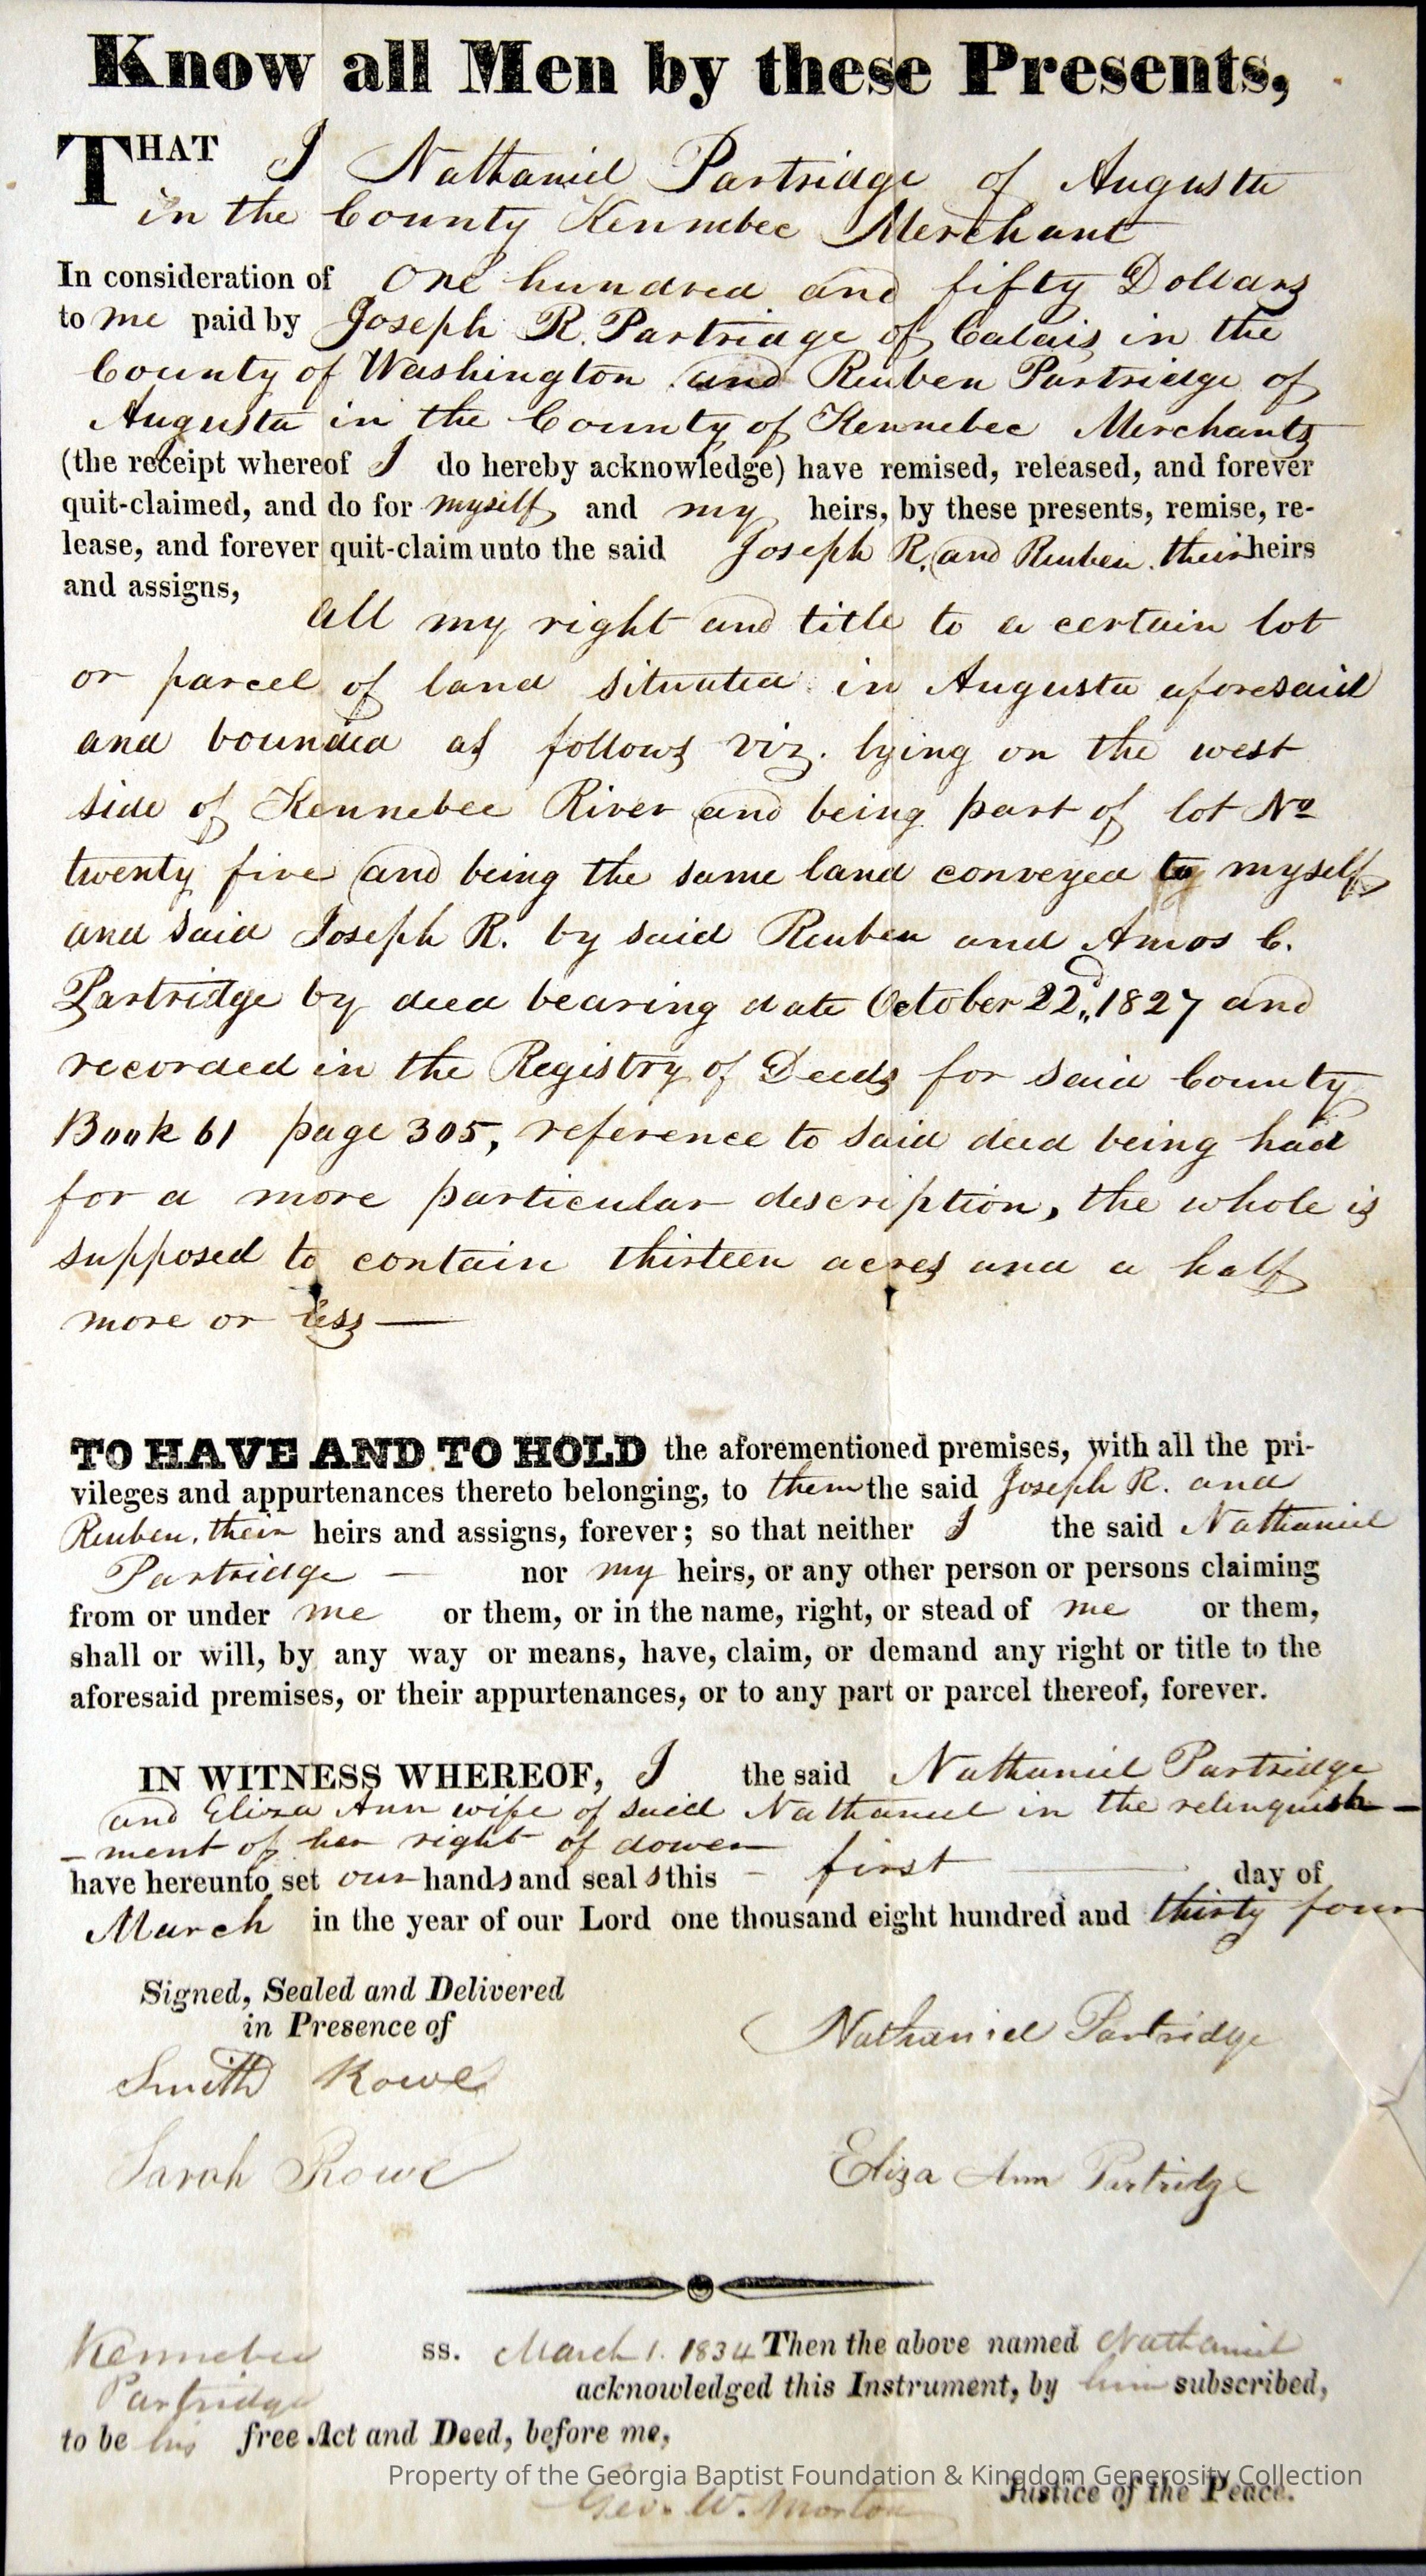 Know all Men by these Presents,
THAT I Nathaniel Partridge of Augusta
in the County Kennebec Merchant
In consideration of One hundred and fifty Dollars
to me paid by Joseph R. Partridge of Calais in the
County of Washington and Reuben Partridge of
Augusta in the County of Kennebec Merchants
(the receipt whereof I do hereby acknowledge) have remised, released, and forever
quit-claimed, and do for myself and my heirs, by these presents, remise, re-
lease, and forever quit-claim unto the said Joseph R. and Reuben. their heirs
and assigns,
All my right and title to a certain lot
or parcel of land situated in Augusta aforesaid
and bounded as follows viz. lying on the west
side of Kennebec River and being part of lot No
twenty five and being the same land conveyed to myself
and said Joseph R. by said Reuben and Amos C.
Partridge by deed bearing date October 22d, 1827 and
recorded in the Registry of Deeds for said County
Book 61 page 305, reference to said deed being had
for a more particular description, the whole is
supposed to contain thirteen acres and a half
more or less —
TO HAVE AND TO HOLD the aforementioned premises, with all the pri-
vileges and appurtenances thereto belonging, to them the said Joseph R. and
Reuben, their heirs and assigns, forever; so that neither I the said Nathaniel
Partridge — nor my heirs, or any other person or persons claiming
from or under me or them, or in the name, right, or stead of me or them,
shall or will, by any way or means, have, claim, or demand any right or title to the
aforesaid premises, or their appurtenances, or to any part or parcel thereof, forever.
IN WITNESS WHEREOF, I the said Nathaniel Partridge
and Eliza Ann wife of said Nathaniel in the relinquish-
-ment of her right of dower
have hereunto set our hands and seals this - first — day of
March in the year of our Lord one thousand eight hundred and thirty four
Signed, Sealed and Delivered
in Presence of
Nathaniel Partridge
Smith Rowe
Sarah Rowe
Eliza Ann Partridge
Kennebec ss. March 1. 1834 Then the above named Nathaniel
Partridge acknowledged this Instrument, by him subscribed,
to be his free Act and Deed, before me,
Property of the Georgia Baptist Foundation & Kingdom Generosity Collection
Geo. W. Morton Justice of the Peace.